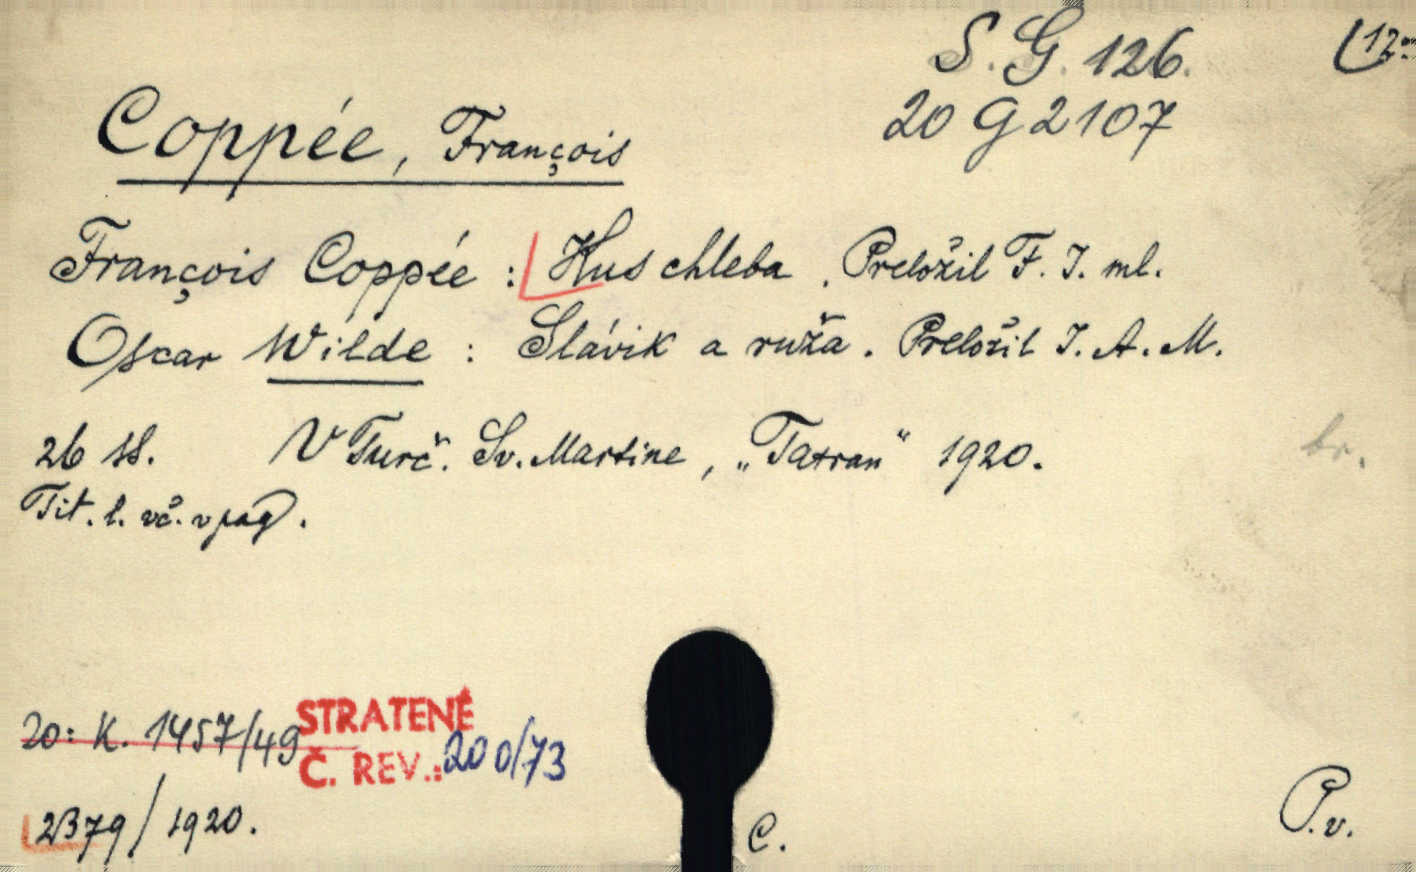 S. G. 126.
20 G 2107
Coppée, François
François Coppée : Kus chleba. Preložil F. J. ml.
Oscar Wilde : Slávik a ruža. Preložil J. A. M.
26 ss. V Turč. Sv. Martine, „Tatran“ 1920.
br.
Tit. l. vč. v pag.
20: K. 1457/49
STRATENÉ
Č. REV.: 200/73
2379/1920.
C.
P. v.